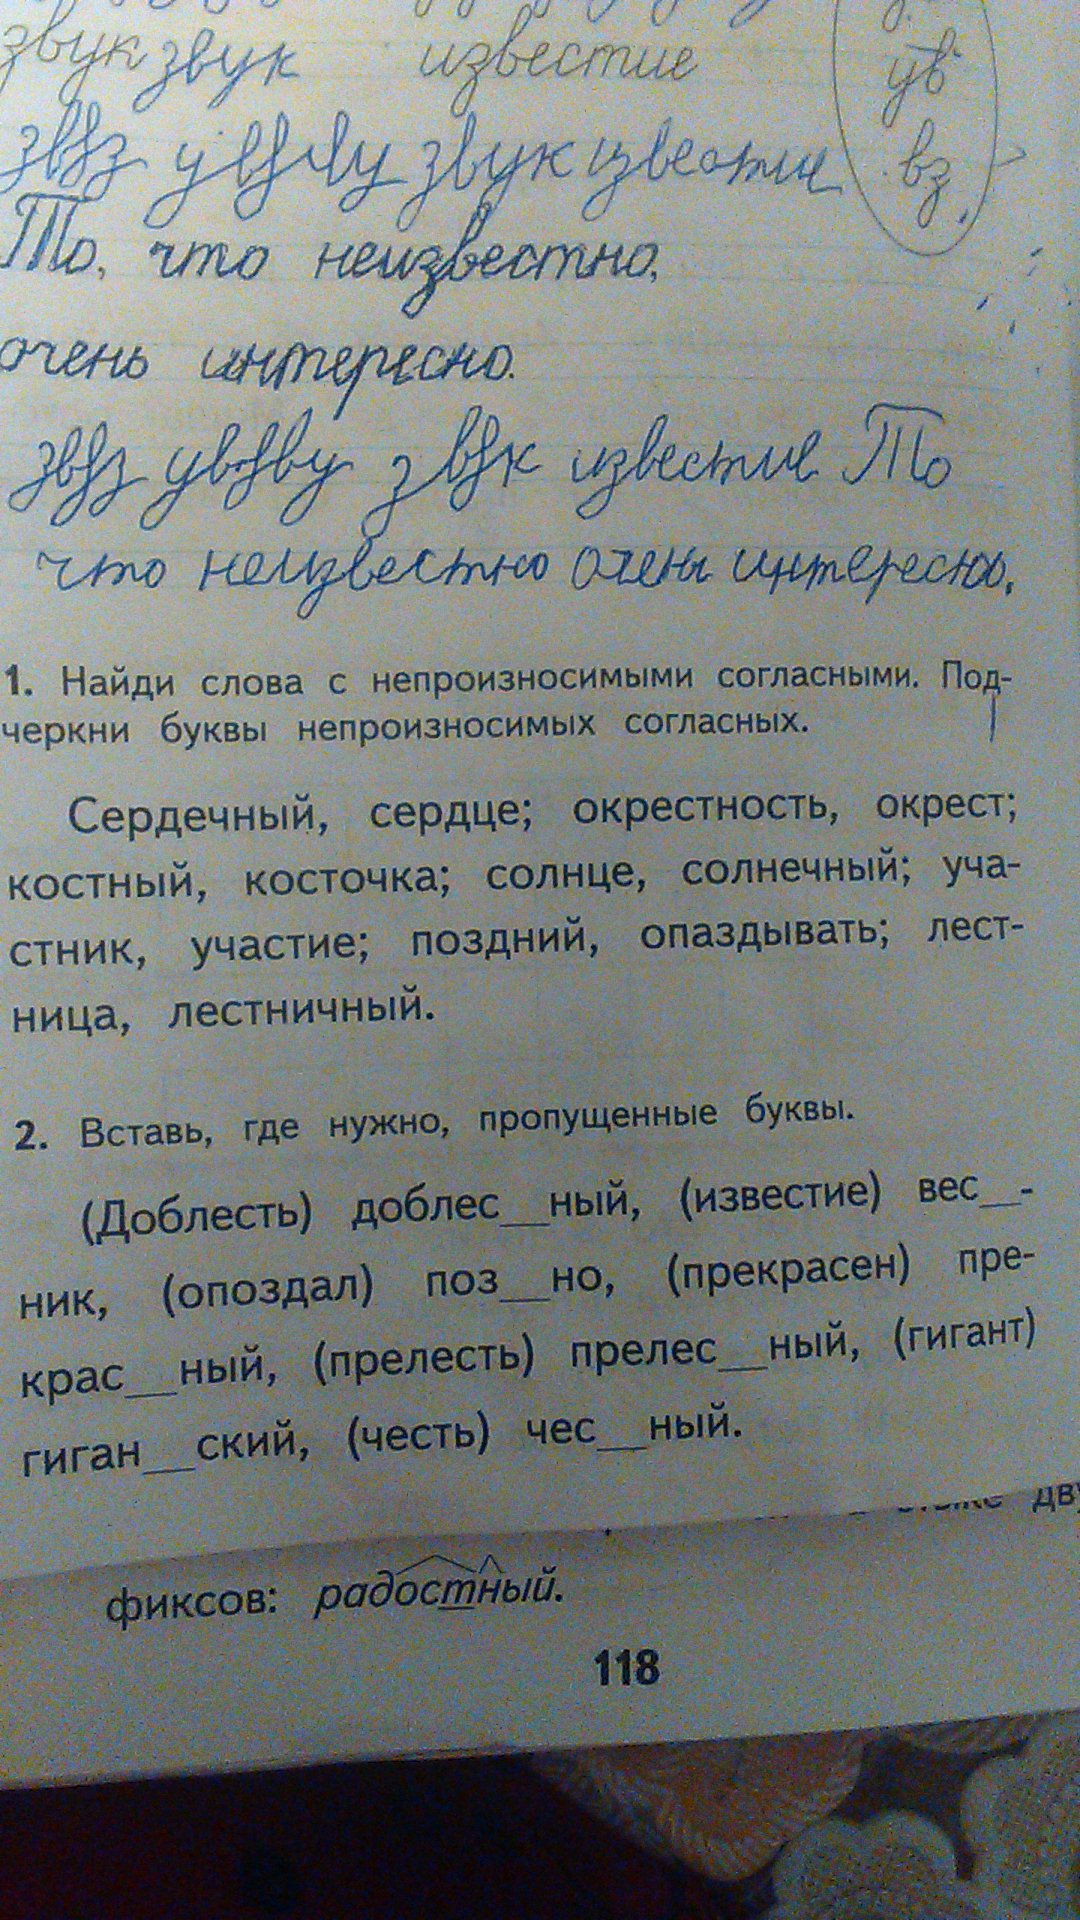 звук звук известие ув
звук известие вз
То, что неизвестно,
очень интересно.
известие То
что неизвестно очень интересно.
1. Найди слова с непроизносимыми согласными. Под-
черкни буквы непроизносимых согласных.
Сердечный, сердце; окрестность, окрест;
костный, косточка; солнце, солнечный; уча-
стник, участие; поздний, опаздывать; лест-
ница, лестничный.
2. Вставь, где нужно, пропущенные буквы.
(Доблесть) доблес__ный, (известие) вес__-
ник, (опоздал) поз__но, (прекрасен) пре-
крас__ный, (прелесть) прелес__ный, (гигант)
гиган__ский, (честь) чес__ный.
фиксов: радостный.
118